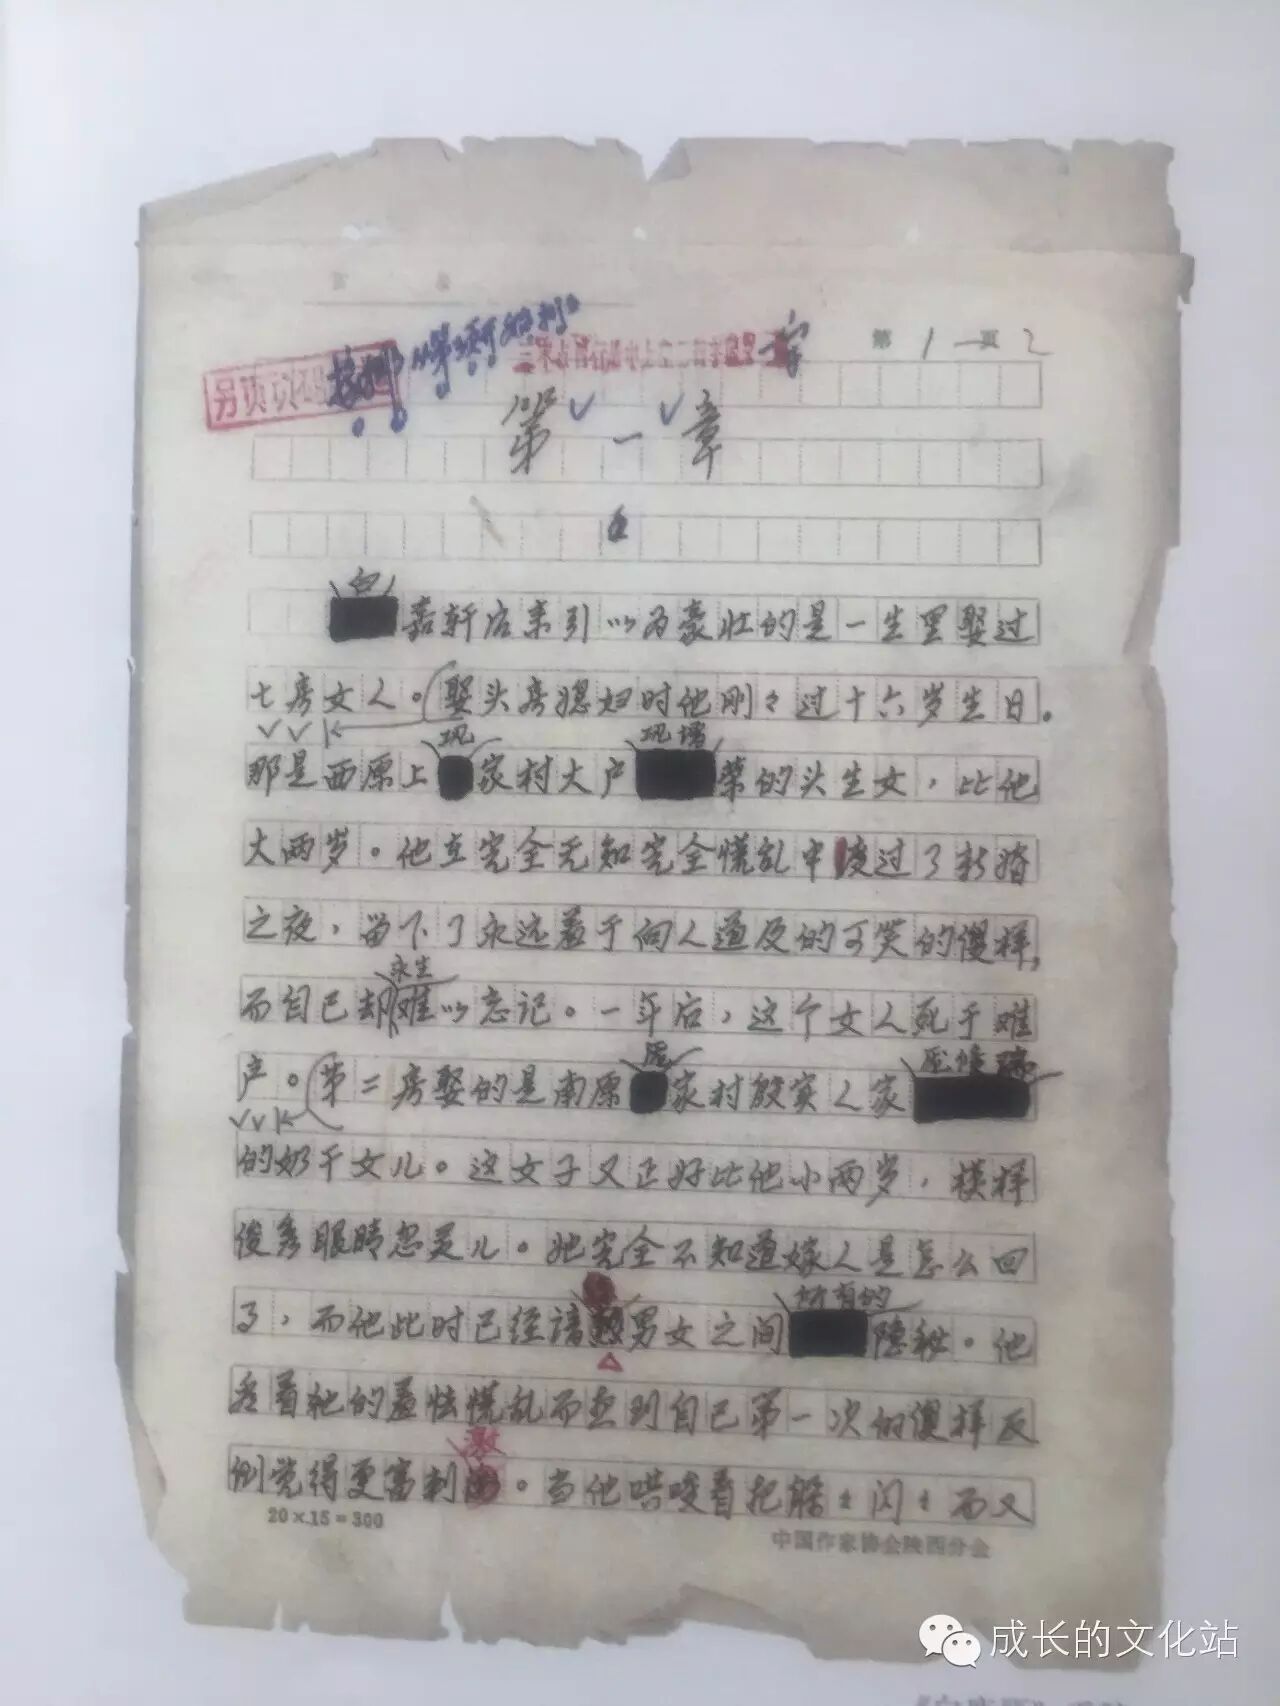 第1页2
另页
第一章
白
嘉轩后来引以为豪壮的是一生里娶过
七房女人。娶头房媳妇时他刚々过十六岁生日。
巩 巩增
那是西原上家村大户荣的头生女，比他
大两岁。他在完全无知完全慌乱中度过了新婚
之夜，留下了永远羞于向人道及的可笑的傻样，
永生
而自己却难以忘记。一年后，这个女人死于难
庞
产。第二房娶的是南原家村殷实人家
的奶干女儿。这女子又正好比他小两岁，模样
俊秀眼睛忽灵儿。她完全不知道嫁人是怎么回
所有的
了，而他此时已经谙男女之间隐秘。他
看着她的羞怯慌乱而想到自己第一次的傻样反
激
倒觉得更富刺。当他哄唆着把躲々闪々而又
20×15=300
中国作家协会陕西分会
成长的文化站